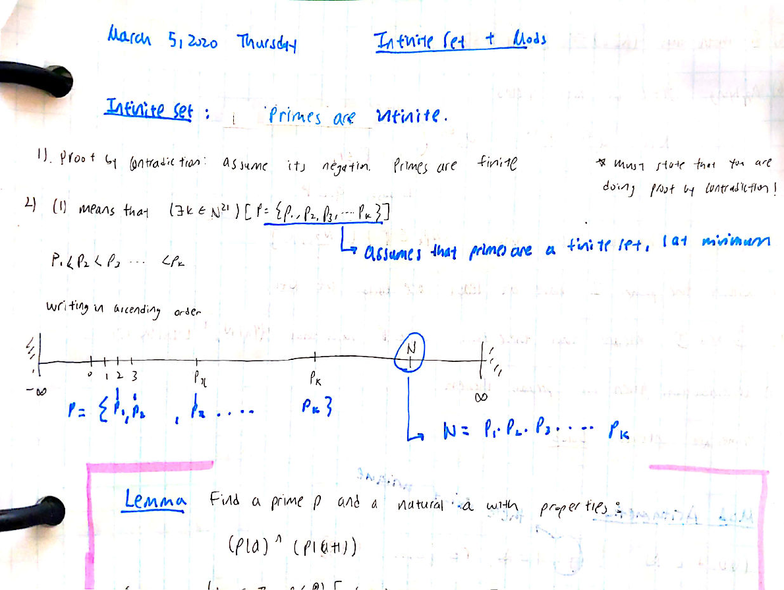 March 5, 2020 Thursday Infinite Set + Mods
Infinite set : Primes are infinite.
1). Proof by contradiction: assume its negation. Primes are finite
* must state that you are
doing proof by contradiction!
2) (1) means that (∃k ∈ N≥1) [P = {P1, P2, P3, ... Pk}]
→ assumes that primes are a finite set, 1 at minimum
P1 < P2 < P3 ... < Pk
writing in ascending order
-∞ 0 1 2 3 Pk N ∞
P = { P1, P2 , .... Pk }
→ N = P1 · P2 · P3 · .... Pk
Lemma Find a prime p and a natural a with properties:
(p|a) ^ (p|a+1)